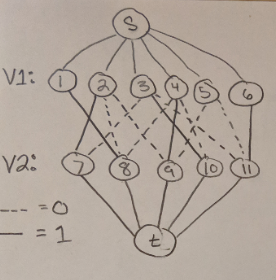 S
V1: 1 2 3 4 5 6
V2: 7 8 9 10 11
--- = 0
— = 1
t